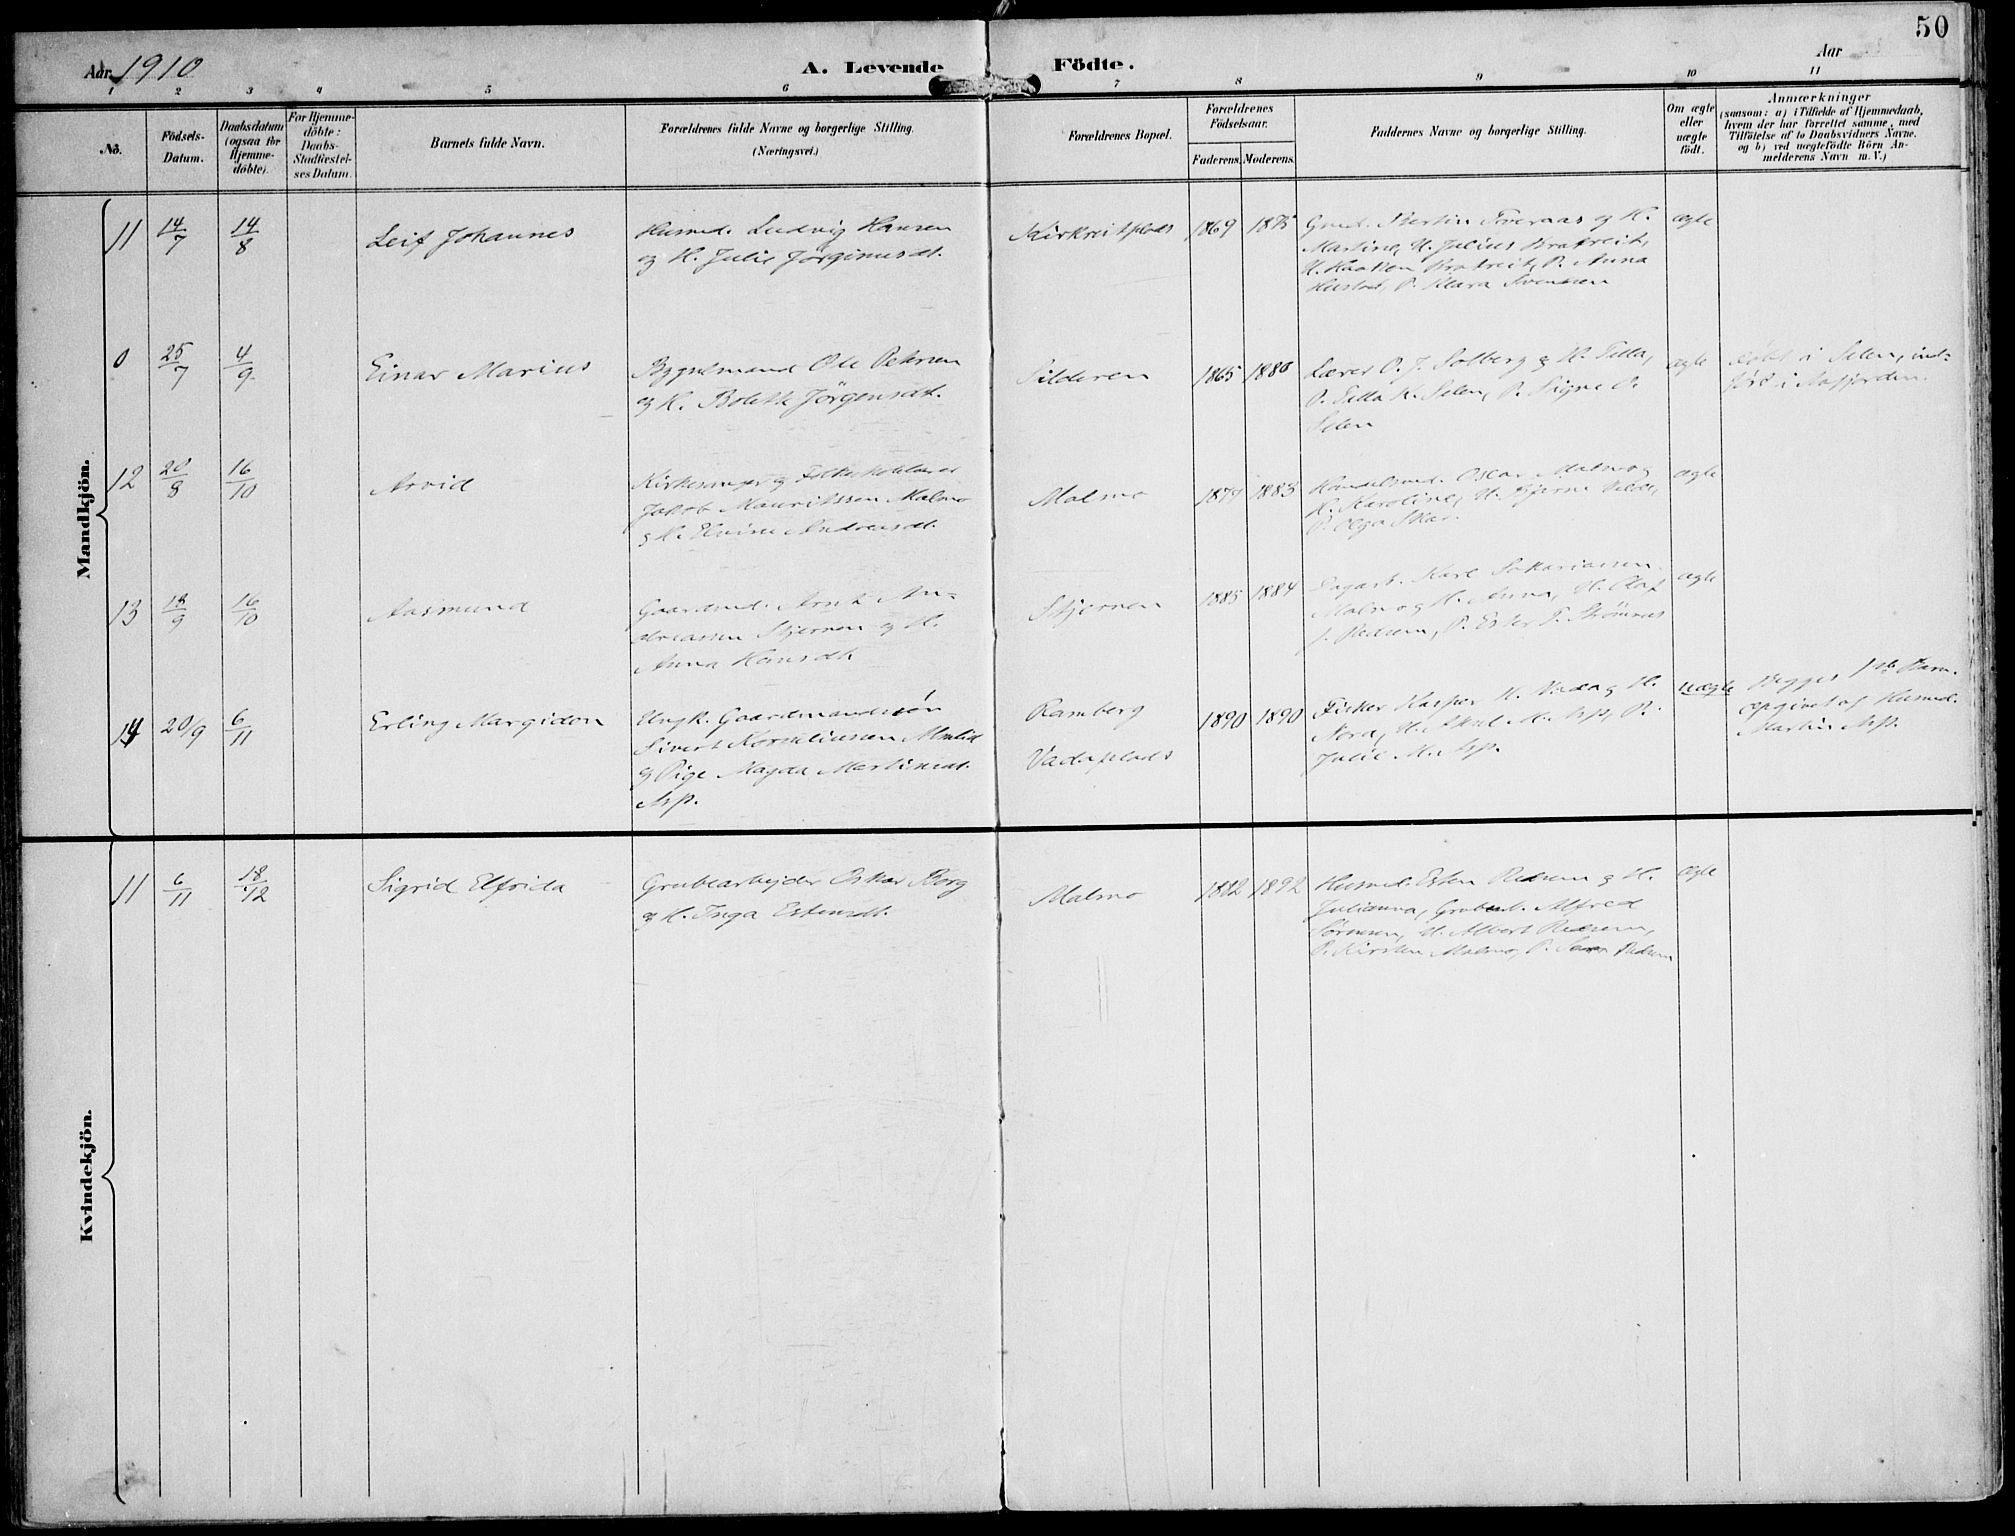 50
Aar 1910
A. Levende Födte.
Aar
1 2 3 4 5 6 7 8 9 10 11
No.
Födsels-
Datum.
Daabsdatum
(ogsaa for
Hjemme-
döbte).
For Hjemme-
döbte:
Daabs-
Stadfæstel-
ses Datum.
Barnets fulde Navn.
Forældrenes fulde Navne og borgerlige Stilling.
(Næringsvei.)
Forældrenes Bopæl.
Forældrenes
Födselsaar.
Faderens. Moderens.
Faddernes Navne og borgerlige Stilling.
Om ægte
eller
uægte
født.
Anmærkninger
(saasom: a) i Tilfælde af Hjemmedaab,
hvem der har forrettet samme, med
Tilföielse af to Daabsvidners Navne.
og b) ved uægtefödte Börn An-
melderens Navn m. V.)
Mandkjön.
11 14/7 14/8
Leif Johannes
Husmd. Ludvig Hansen
og H. Julie Jørginusdt.
Kirkreitplads
1869 1875
og H.
Martine, U. Julius Bratreit,
U. Haaken Bratreit, P. Anna
P. Klara Svendsen
ægte
0 25/7 4/9
Einar Marius
Bygselmand Ole Petersen
og H. Bolette Jørgensdt.
Silderen
1865 1886
Lærer O. J. Solberg og H.
P. K. Selen, P. Signe O.
Selen
ægte
Døbt i Selen, ind-
ført i
12 20/8 16/10
Arvid
Kirkesanger og Folkeskolelærer
Jakob Mauritssen Malmo
og H. Elvine Andreasdt.
Malmo
1883
Handelsmd. Oscar Malmo og
H. Karoline, U. Bjarne
P. Olga Skar.
ægte
13 18/9 16/10
Aasmund
Gaardmd. Arnt An-
dreassen Stjernen og H.
Anna Hansdt.
Stjernen
1885 1884
Dagarb. Karl Sakariassen
Malmo og H. Anna, U. Olaf
J. Redsem, P. Ester F. Strømnes
ægte
14 20/9 6/11
Erling Margidon
Ungk. Gaardmandssøn
Sivert Korneliussen Almlid
og Pige Magda Martinsdt.
Asp.
Ramberg
Vadaplads
1890 1890
Fisker Kasper H. Vada og H.
Nora, U. M. Asp, P.
Julie M. Asp.
uægte
Begges 1ste Barn.
opgivet af Husmd.
Martin Asp.
Kvindekjön.
11 6/11 18/12
Sigrid Elfrida
Grubearbejder Oskar Borg
og H. Inga Estensdt.
Malmo
1882 1892
Husmd. Esten Redsem og H.
Julianna, Grubearb. Alfred
Sørensen, U. Albert Redsem,
P. Kirsten Malmo, P. Redsem
ægte